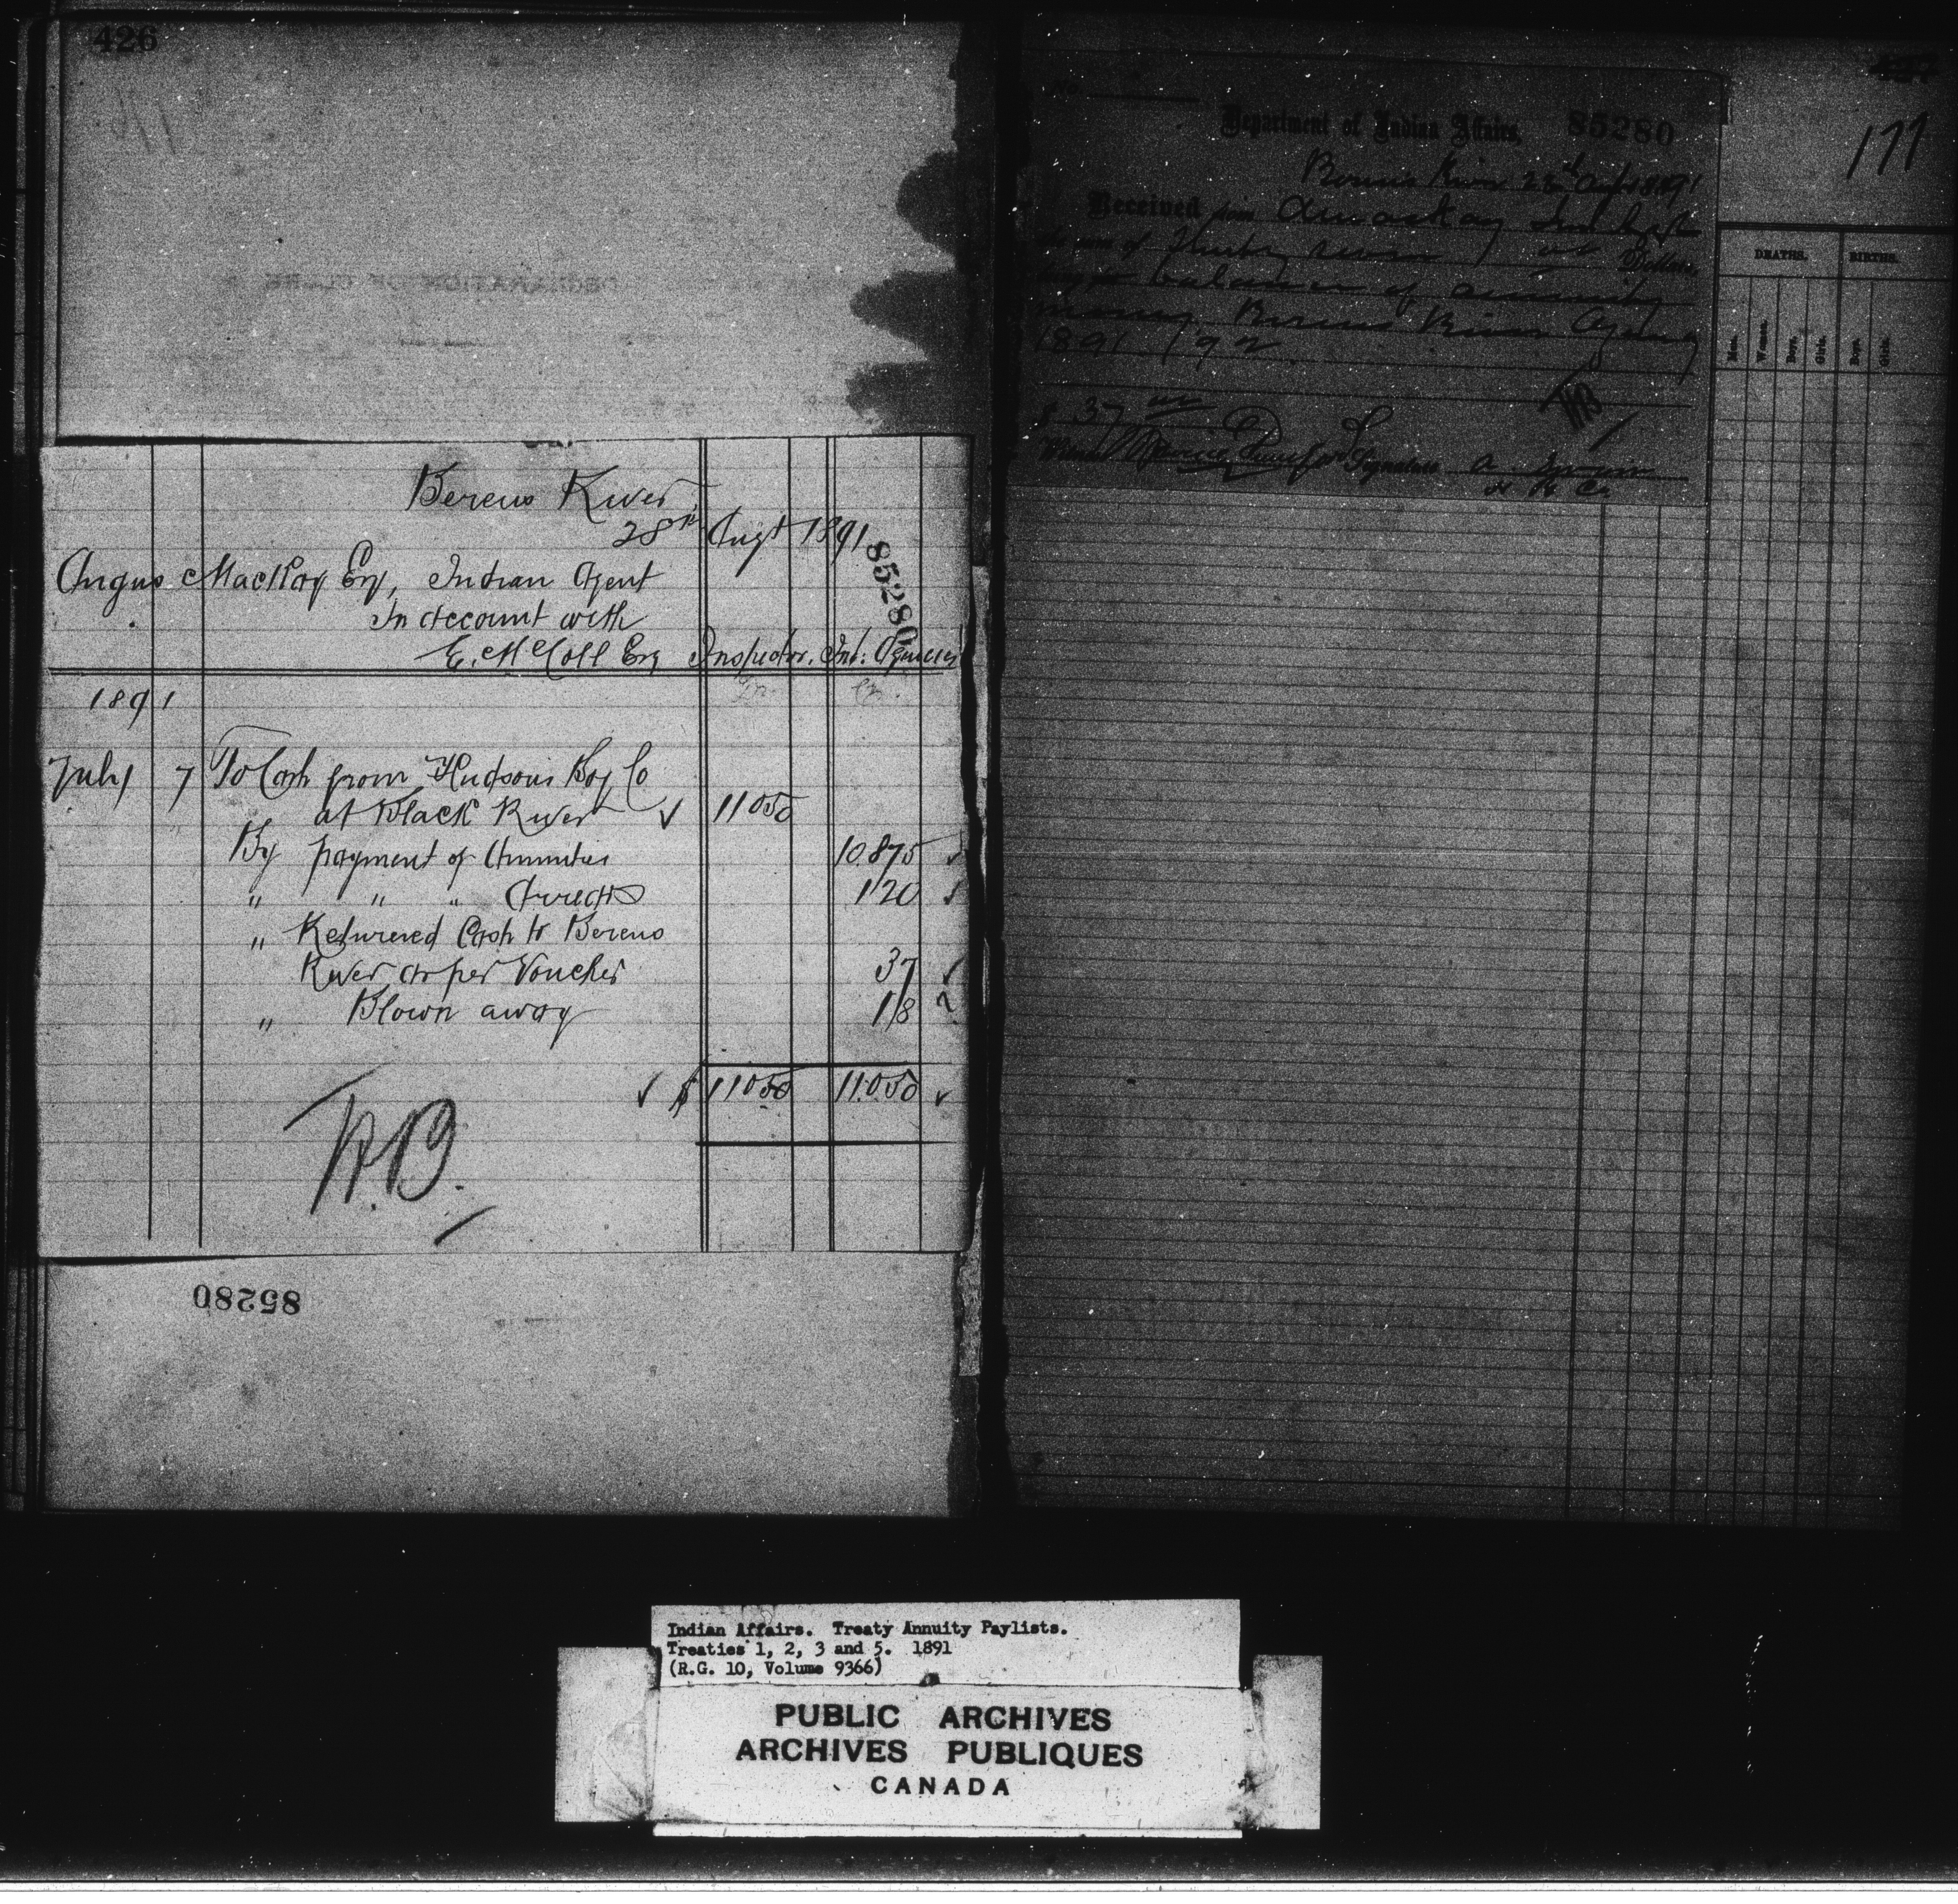 426
Berens River
28th Augt 1891
85280
Angus MacKay Esq, Indian Agent
In account with
E. McColl Esq Inspector. Ind: Agencies
Dr. Cr.
1891
July 7 To Cash from Hudsons Bay Co
at Black River 11050
By payment of Annuities 10.875
" " " Arrears 120
" Returned Cash to Berens
River as per Voucher 37
" Blown away 18
$ 11050 11.050
85280
No.
Department of Indian Affairs, 85280
Berens River 28th Augt 1891
Received from A MacKay Ind Agt
the sum of Thirty seven Dollars,
being for balance of annuity
money Berens River Agency
1891/92
$ 37
Witness Signature
H B Co
177
DEATHS. BIRTHS.
Men. Women. Boys. Girls. Boys. Girls.
Indian Affairs. Treaty Annuity Paylists.
Treaties 1, 2, 3 and 5. 1891
(R.G. 10, Volume 9366)
PUBLIC ARCHIVES
ARCHIVES PUBLIQUES
CANADA